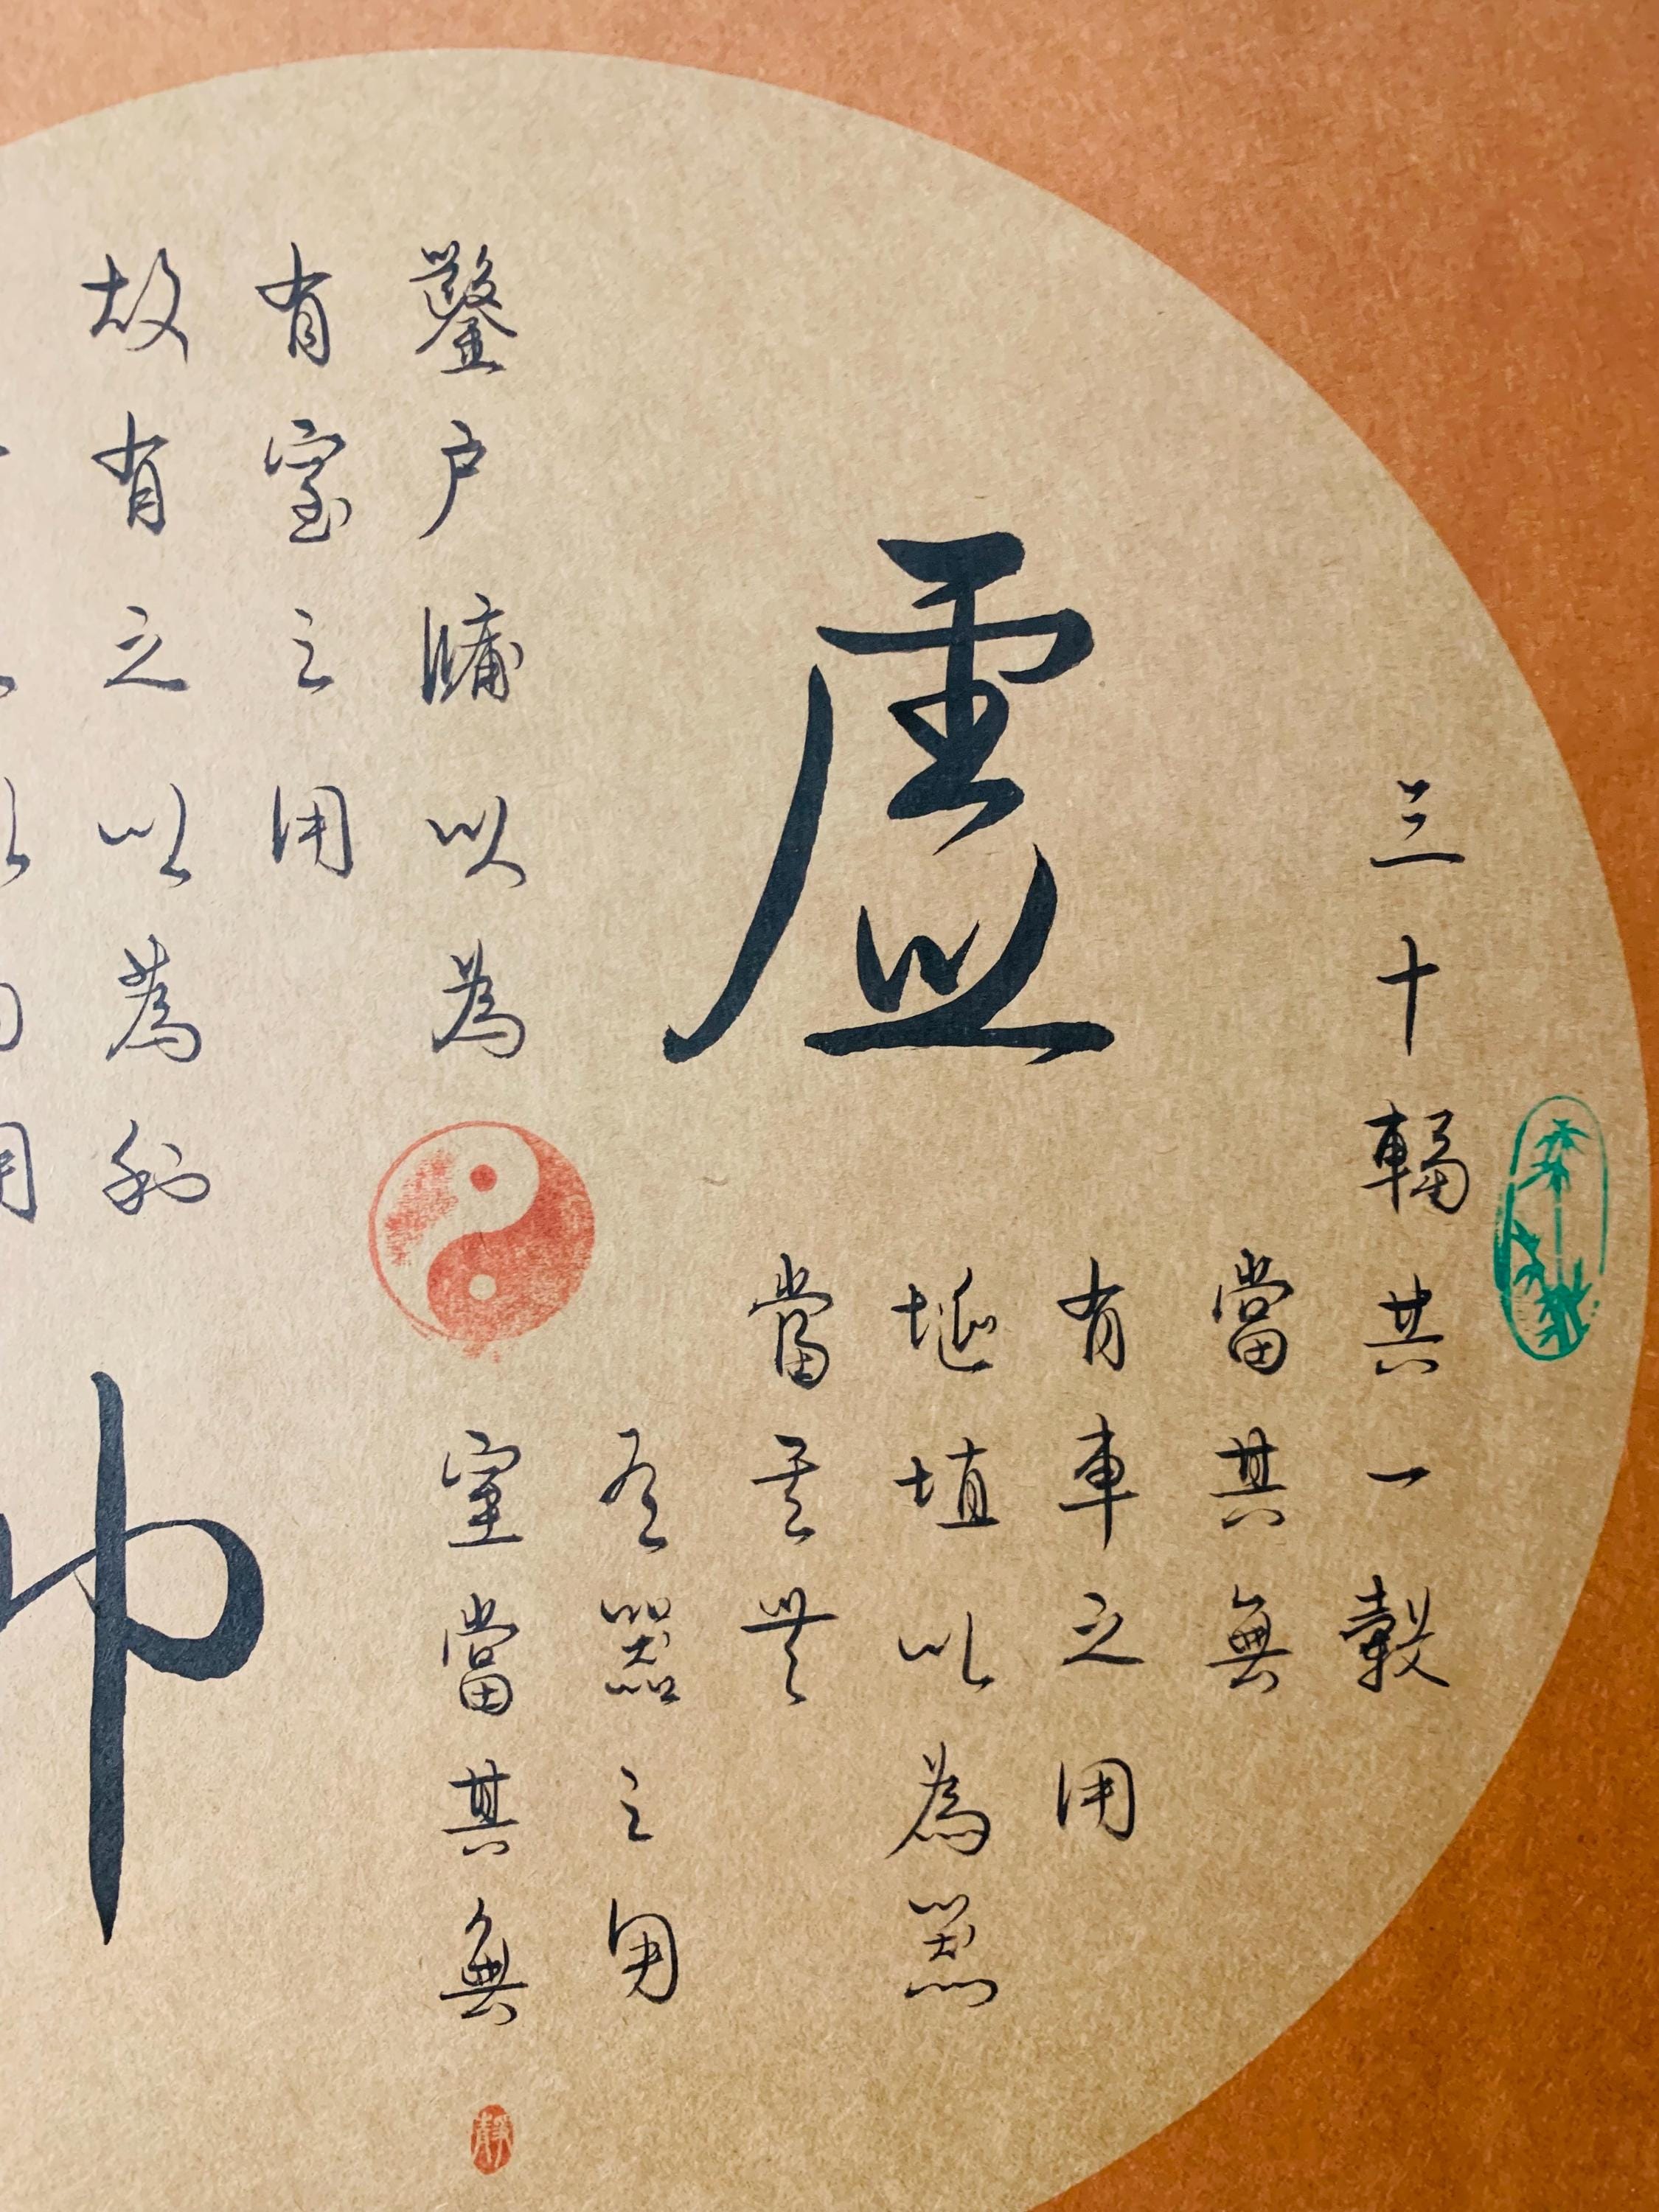 虛
三十輻共一轂
當其無
有車之用
埏埴以為器
當其無
有器之用
鑿户牖以為
室當其無
有室之用
故有之以為利
靜